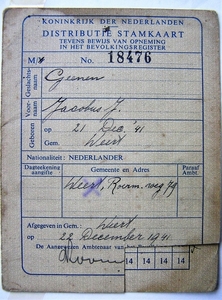 KONINKRIJK DER NEDERLANDEN
DISTRIBUTIE STAMKAART
TEVENS BEWIJS VAN OPNEMING
IN HET BEVOLKINGSREGISTER
M/ No. 18476
Geslachts-
naam Geenen
Voor-
naam Jacobus J.
Geboren op 21 Dec. '41
Gem. Weert
Nationaliteit: NEDERLANDER
Dagteekening
aangifte Gemeente en Adres Paraaf
Ambt.
Weert, Roerm. weg 79
Afgegeven in Gem.: Weert
op 22 December 1941
De Aangewezen Ambtenaar van
14 14 14 14